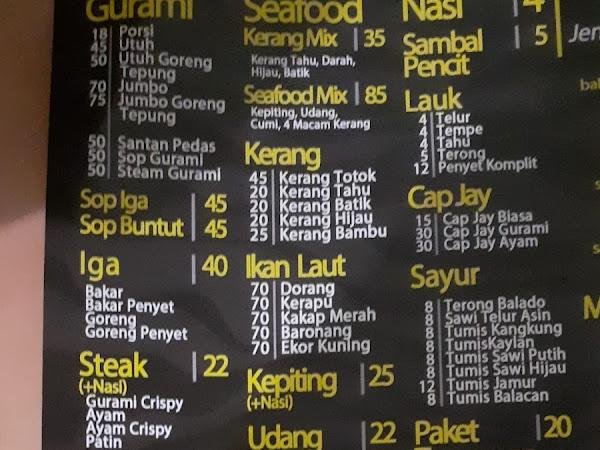 Gurami
18 Porsi
45 Utuh
50 Utuh Goreng
Tepung
70 Jumbo
75 Jumbo Goreng
Tepung
50 Santan Pedas
50 Sop Gurami
50 Steam Gurami
Sop Iga 45
Sop Buntut 45
Iga 40
Bakar
Bakar Penyet
Goreng
Goreng Penyet
Steak 22
(+Nasi)
Gurami Crispy
Ayam
Ayam Crispy
Patin
Seafood
Kerang Mix 35
Kerang Tahu, Darah,
Hijau, Batik
Seafood Mix 85
Kepiting, Udang,
Cumi, 4 Macam Kerang
Kerang
45 Kerang Totok
20 Kerang Tahu
20 Kerang Batik
20 Kerang Hijau
25 Kerang Bambu
Ikan Laut
70 Dorang
70 Kerapu
70 Kakap Merah
70 Baronang
70 Ekor Kuning
Kepiting 25
(+Nasi)
Udang 22
Nasi 4
Sambal 5
Pencit
Lauk
4 Telur
4 Tempe
4 Tahu
5 Terong
12 Penyet Komplit
Cap Jay
15 Cap Jay Biasa
30 Cap Jay Gurami
30 Cap Jay Ayam
Sayur
8 Terong Balado
8 Sawi Telur Asin
8 Tumis Kangkung
8 TumisKaylan
8 Tumis Sawi Putih
8 Tumis Sawi Hijau
12 Tumis Jamur
8 Tumis Balacan
Paket 20